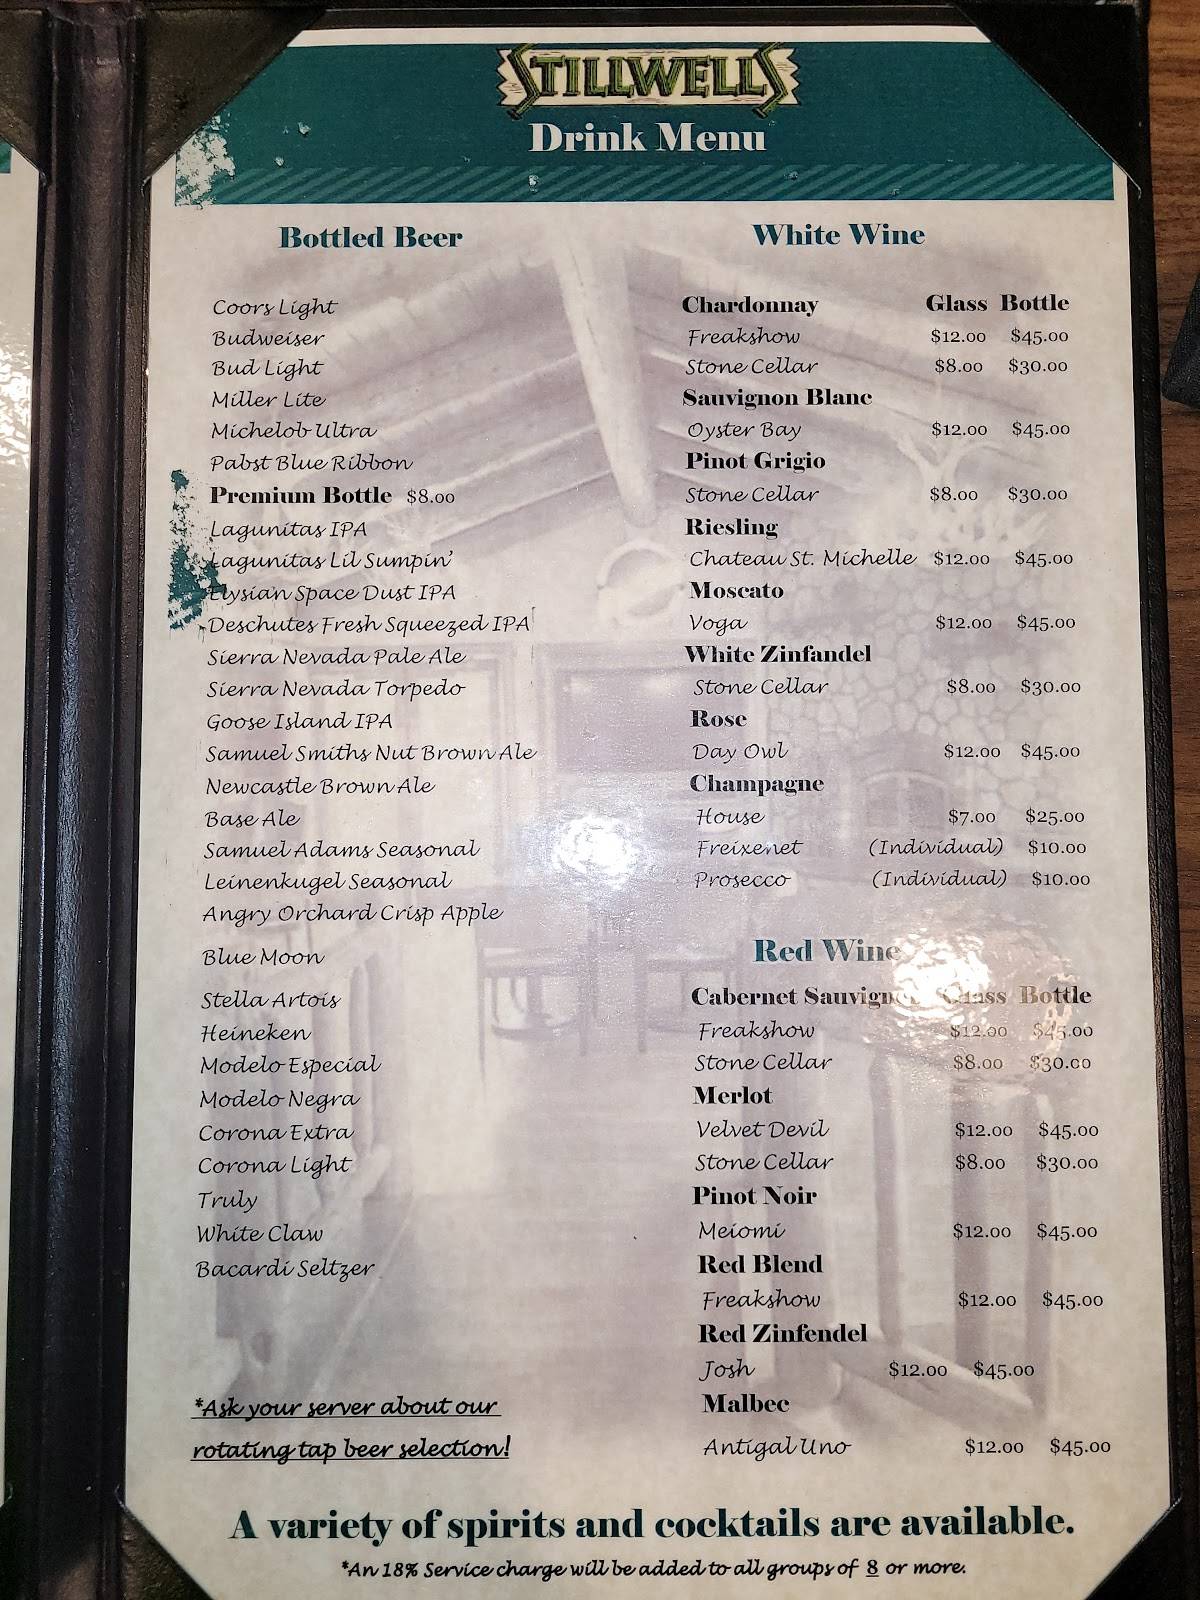 STILLWELLS
Drink Menu
Bottled Beer
Coors Light
Budweiser
Bud Light
Miller Lite
Michelob Ultra
Pabst Blue Ribbon
Premium Bottle $8.00
Lagunitas IPA
Lagunitas Lil Sumpin'
Elysian Space Dust IPA
Deschutes Fresh Squeezed IPA
Sierra Nevada Pale Ale
Sierra Nevada Torpedo
Goose Island IPA
Samuel Smiths Nut Brown Ale
Newcastle Brown Ale
Base Ale
Samuel Adams Seasonal
Leinenkugel Seasonal
Angry Orchard Crisp Apple
Blue Moon
Stella Artois
Heineken
Modelo Especial
Modelo Negra
Corona Extra
Corona Light
Truly
White Claw
Bacardi Seltzer
*Ask your server about our
rotating tap beer selection!
White Wine
Chardonnay Glass Bottle
Freakshow $12.00 $45.00
Stone Cellar $8.00 $30.00
Sauvignon Blanc
Oyster Bay $12.00 $45.00
Pinot Grigio
Stone Cellar $8.00 $30.00
Riesling
Chateau St. Michelle $12.00 $45.00
Moscato
Voga $12.00 $45.00
White Zinfandel
Stone Cellar $8.00 $30.00
Rose
Day Owl $12.00 $45.00
Champagne
House $7.00 $25.00
Freixenet (Individual) $10.00
Prosecco (Individual) $10.00
Red Wine
Cabernet Sauvignon Glass Bottle
Freakshow $12.00 $45.00
Stone Cellar $8.00 $30.00
Merlot
Velvet Devil $12.00 $45.00
Stone Cellar $8.00 $30.00
Pinot Noir
Meiomi $12.00 $45.00
Red Blend
Freakshow $12.00 $45.00
Red Zinfendel
Josh $12.00 $45.00
Malbec
Antigal Uno $12.00 $45.00
A variety of spirits and cocktails are available.
*An 18% Service charge will be added to all groups of 8 or more.